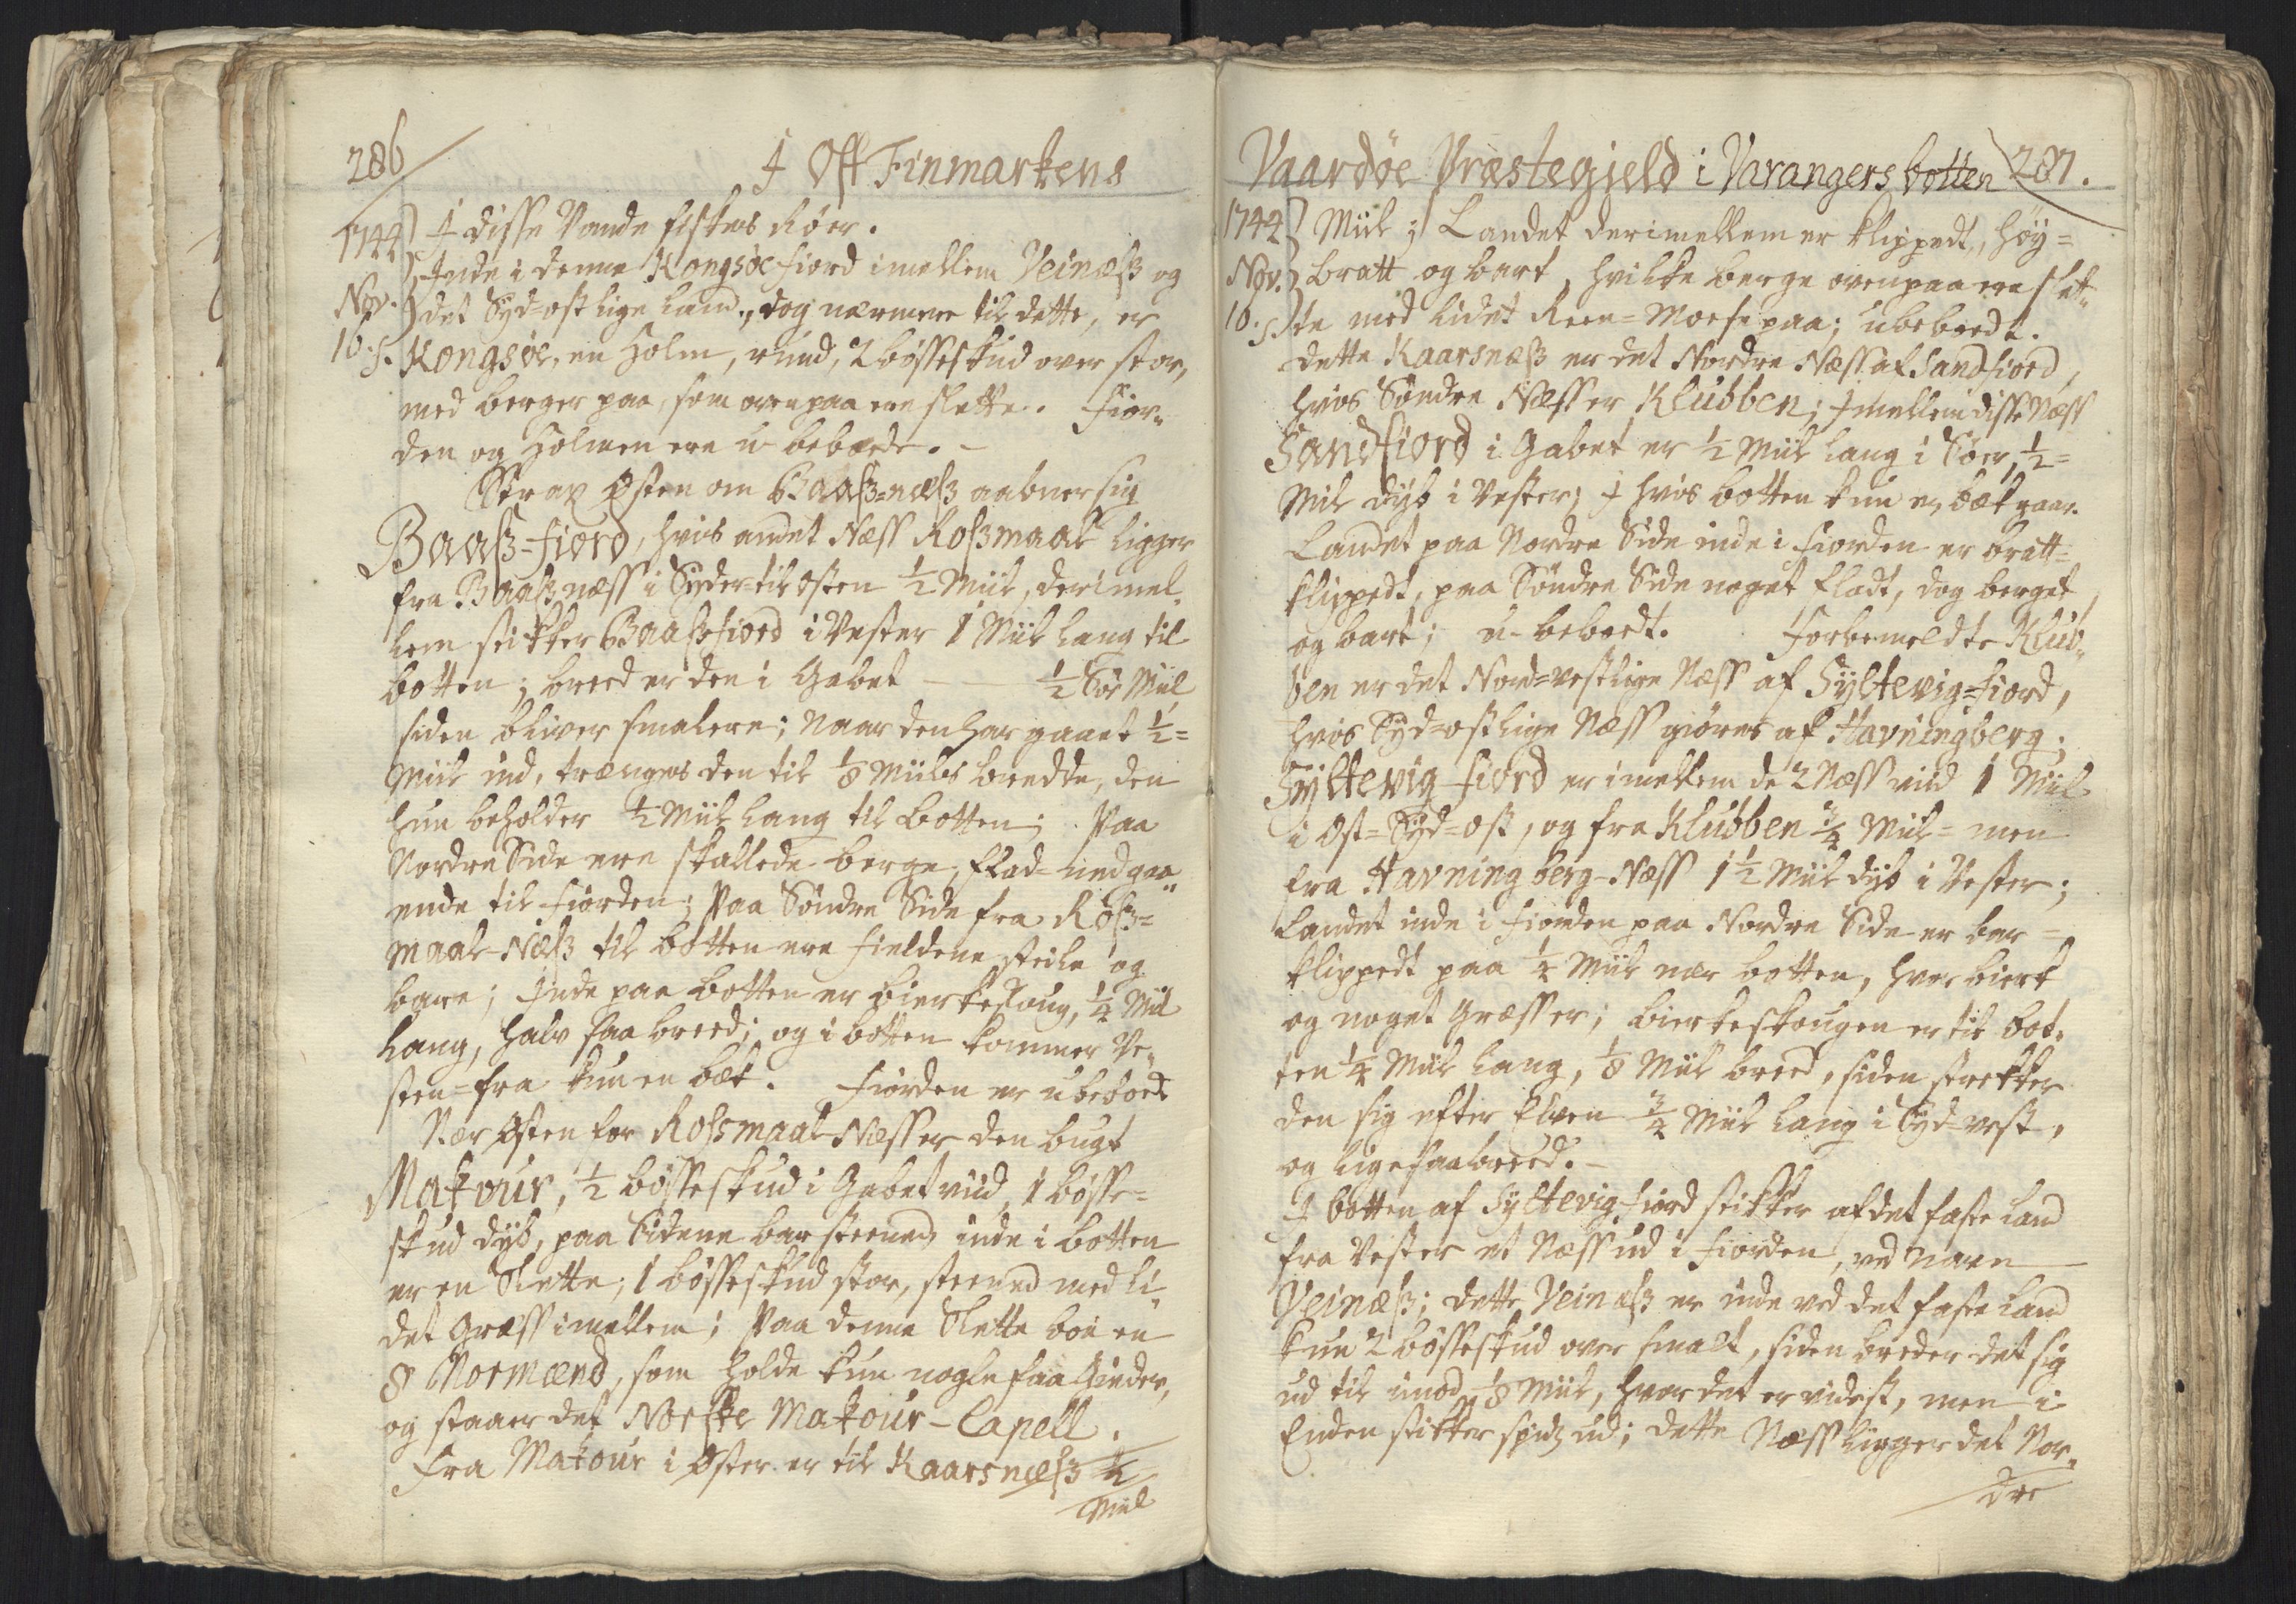 286
I Ost Finmarkens
1744 I disse Vande fiskes Röer.
Inde i denne Kongsöe fiord imellem Veinæss og
Nov. det Syd-ostlige land, dog nærmere til dette, er
10. s. Kongsöe, en Holm, rund, 2 bösseskud over stor,
med berger paa, som ovenpaa ere slette. Fior„
den og Holmen ere u-beboede. -
Strax Østen om Baaß-næß aabner sig
Baaß-fiord, hvis andet Næss Roßmaal ligger
fra Baaß næss i Syder-til Osten ½ Miil, derimel„
lem stikker Baaßfiord i Vester 1 Miil lang til
botten; breed er den i Gabet — ½ Söe Miil,
siden bliver smalere; Naar den har gaaet ½ =
Miil ind, trænges den til ⅛ Miils bredde, den
hun beholder ½ Miil lang til Botten; Paa
Nordre Side ere skallede berge, flad-nedgaa„
ende til Fiorden; Paa Söndre Side fra Roß=
maal-Næß til botten ere fieldene steile og
bare; Inde paa botten er bierkeskoug, ¼ Miil
lang, halv saa breed; og i botten kommer Ve„
sten=fra kun en bæk. Fiorden er ubeboed.
Nær Østen for Rossmaal-Næss er den bugt
Makour, ½ bösseskud i Gabet viid, 1 bösse=
skud dyb, paa Sidene bar steened, inde i botten
er en Slette, 1 bösseskud stor, steened med li„
det Græss imellem; Paa denne Slette boe en
8 Normænd, som holde kun nogle faa Giedor,
og staaer det Norske Makour-Capell.
Fra Makour i Øster er til Kaarsnæß ½
Miil
Vaardöe Præstegield i Varangers botten 287.
1744 Miil; Landet derimellem er klippedt, höy=
Nov. bratt og bart, hvilke berge ovenpaa ere slet„
10. s. te med lidet Reen=Moese paa; ubeboedt.
Dette Kaarsnæß er det Nordre Næss af Sandfiord,
hvis Söndre Næss er Klubben; Imellem disse Næss
Sandfiord i Gabet er ½ Miil lang i Söer, ½ =
Miil dyb i Vester; I hvis botten kun en bæk gaar.
Landet paa Nordre Side inde i fiorden er bratt=
klippedt, paa Söndre Side noget fladt, dog berget
og bart; u-beboedt. Forbemeldte Klub„
ben er det Nord=vestlige Næss af Syltevig=fiord,
hvis Syd=ostlige Næss giöres af Havningberg.
Syltevig fiord er imellem de 2 Næss viid 1 Miil
i Ost=Syd=Ost, og fra Klubben ¾ Miil= men
fra Havningberg-Næss 1½ Miil dyb i Vester;
Landet inde i fiorden paa Nordre Side er bar=
klippedt paa ¼ Miil nær botten, hvor bierk
og noget Græss er; Bierkeskougen er til bot„
ten ¼ Miil lang, ⅛ Miil breed, siden strekker
den sig efter Elven ¾ Miil lang i Syd-vest,
og ligesaa breed. -
I botten af Syltevig fiord stikker af det faste land
fra Vester et Næss ud i fiorden, ved navn —
Veinæß; dette Veinæß er inde ved det faste land
kun 2 bösseskud over smalt, siden breder det sig
ud til imod ⅛ Miil, hvor det er videst, men i
Enden stikker spitz ud; dette Næss ligger det Nor„
dre